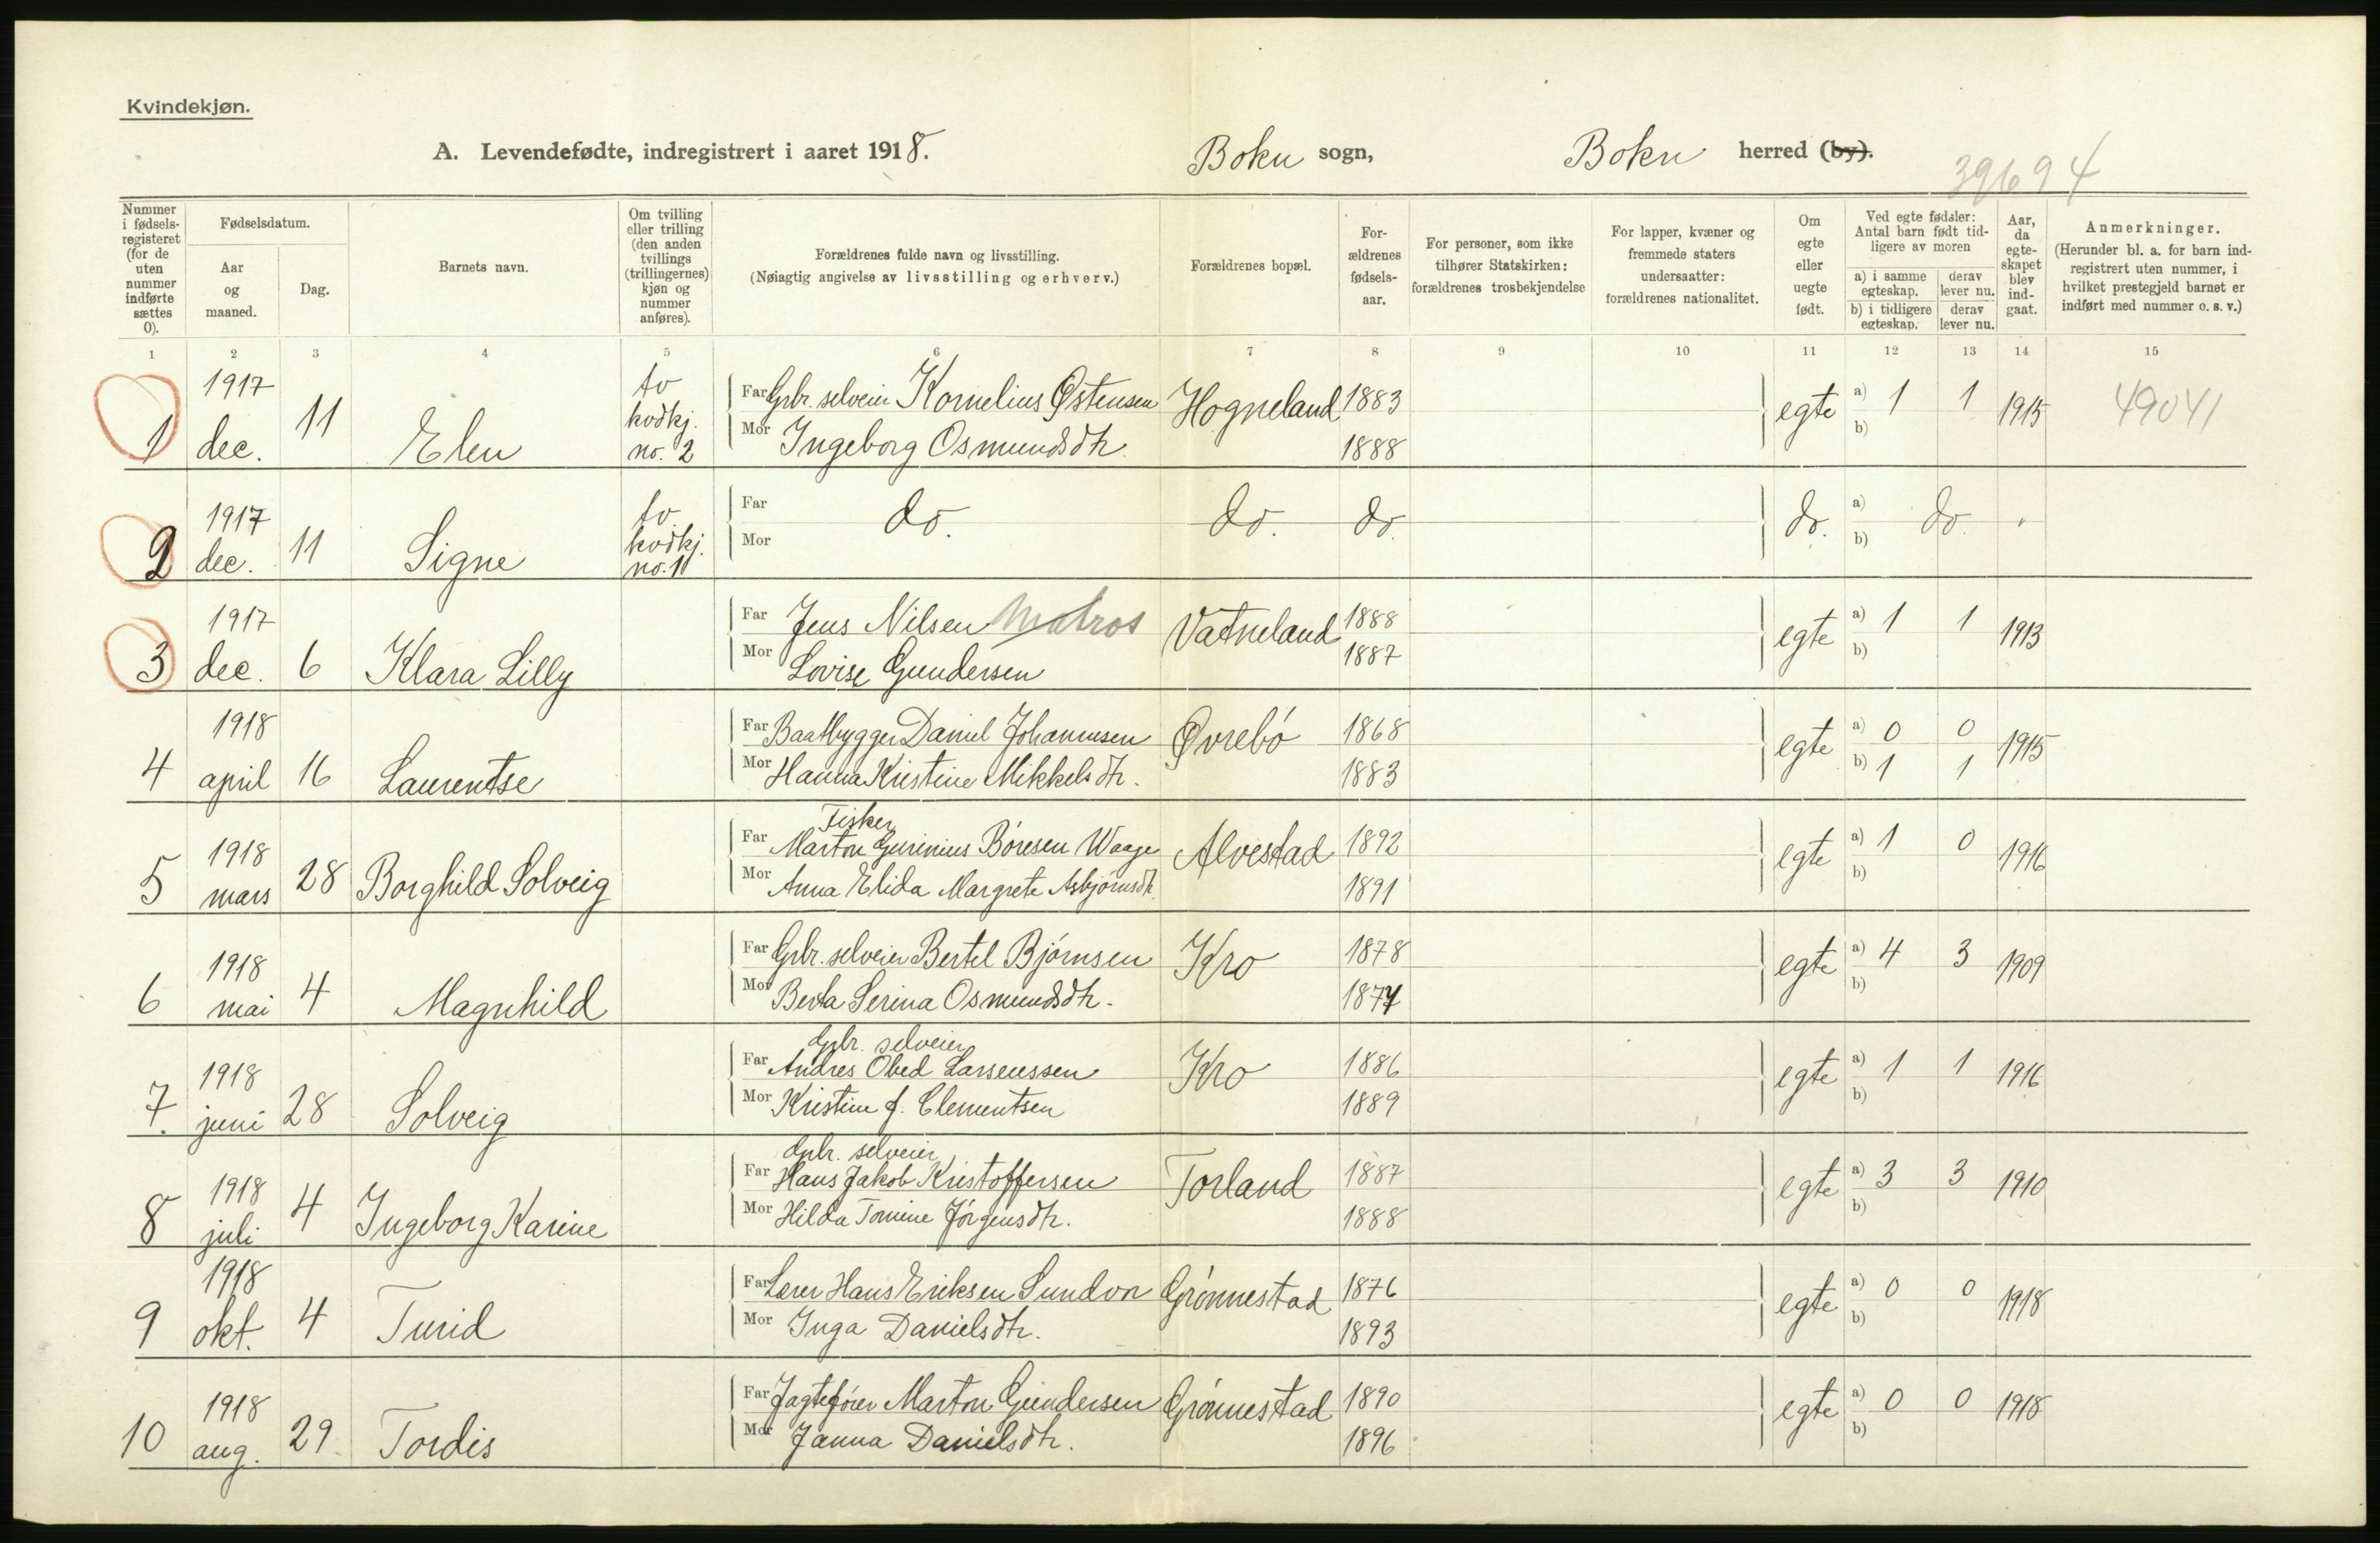 Kvindekjøn.
A. Levendefødte, indregistrert i aaret 1918. Bokn sogn, Bokn herred (by).
39694
Nummer i fødsels-registeret (for de uten nummer indførte sættes 0).
Fødselsdatum.
Aar og maaned.
Dag.
Barnets navn.
Om tvilling eller trilling (den anden tvillings (trillingernes) kjøn og nummer anføres).
Forældrenes fulde navn og livsstilling.
(Nøiagtig angivelse av livsstilling og erhverv.)
Forældrenes bopæl.
For-ældrenes fødsels-aar.
For personer, som ikke tilhører Statskirken: forældrenes trosbekjendelse
For lapper, kvæner og fremmede staters undersaatter: forældrenes nationalitet.
Om egte eller uegte født.
Ved egte fødsler: Antal barn født tid-ligere av moren
a) i samme egteskap.
derav lever nu.
b) i tidligere egteskap.
derav lever nu.
Aar, da egte-skapet blev ind-gaat.
Anmerkninger.
(Herunder bl. a. for barn ind-registrert uten nummer, i hvilket prestegjeld barnet er indført med nummer o. s. v.)
1 2 3 4 5 6 7 8 9 10 11 12 13 14 15
1 1917 dec. 11 Elen to kvdkj. no. 2 Far Grbr. selveier Kornelius Østensen Hogneland 1883 egte a) 1 1 1915 49041
Mor Ingeborg Osmundsdtr. 1888 b)
2 1917 dec. 11 Signe to kvdkj. no. 1 Far do. do. do. do. a) do. "
Mor b)
3 1917 dec. 6 Klara Lilly Far Jens Nilsen Matros Vatneland 1888 egte a) 1 1 1913
Mor Lovise Gundersen 1887 b)
4 1918 april 16 Laurentse Far Baatbygger Daniel Johannesen Øvrebö 1868 egte a) 0 0 1915
Mor Hanna Kristine Mikkelsdtr. 1883 b) 1 1
5 1918 mars 28 Borghild Solveig Fisker
Far Marton Gurinius Böresen Waage Alvestad 1892 egte a) 1 0 1916
Mor Anna Elida Margrete Asbjörnsdtr. 1891 b)
6 1918 mai 4 Magnhild Far Grbr. selveier Bertel Björnsen Kro 1878 egte a) 4 3 1909
Mor Berta Serina Osmundsdtr. 1877 b)
7. 1918 juni 28 Solveig Grbr. selveier
Far Andres Obed Larsenssen Kro 1886 egte a) 1 1 1916
Mor Kristine f. Clementsen 1889 b)
8 1918 juli 4 Ingeborg Karine Grbr. selveier
Far Hans Jakob Kristoffersen Torland 1887 egte a) 3 3 1910
Mor Hilda Tomine Jörgensdtr. 1888 b)
9 1918 okt. 4 Turid Far Lærer Hans Eriksen Sundvor Grönnestad 1876 egte a) 0 0 1918
Mor Inga Danielsdtr. 1893 b)
10 1918 aug. 29 Tordis Far Jagtefören Marton Gundersen Grönnestad 1890 egte a) 0 0 1918
Mor Janna Danielsdtr. 1896 b)